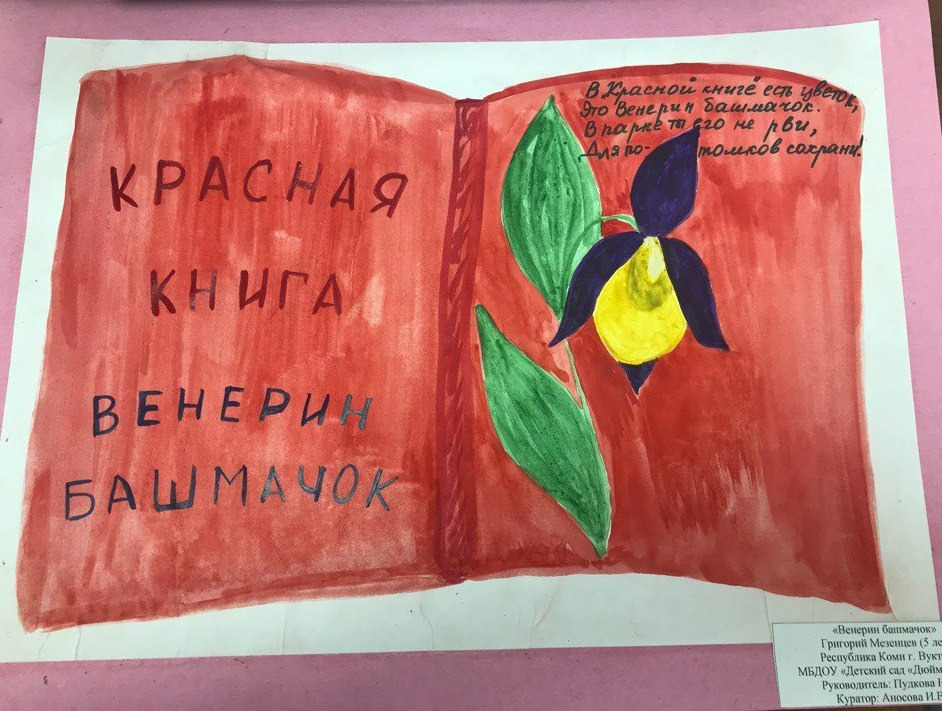 КРАСНАЯ
КНИГА
ВЕНЕРИН
БАШМАЧОК
В Красной книге есть цветок,
Это Венерин башмачок.
В парке ты его не рви,
Для по- томков сохрани!
«Венерин башмачок»
Григорий Мезенцев (5 ле
Республика Коми г. Вукт
МБДОУ «Детский сад «Дюйм
Руководитель: Пудкова Н
Куратор: Аносова И.Е